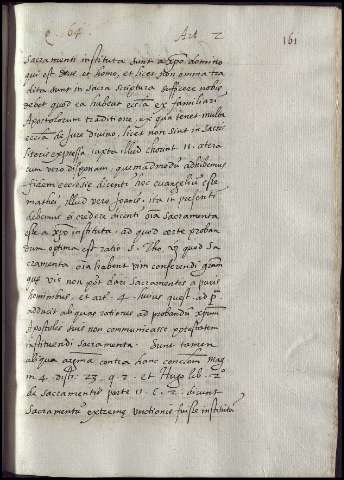 q. 64. Art. 2 161
Sacramenti instituta sunt a xpo domino
qui est deus et homo, et licet non omnia tra
dita sunt in sacra scriptura sufficere nobis
debet quod ea habeat ecclia ex familiari
Apostolorum traditione, ex qua tenet multa
ecclia de jure divino, licet non sint in sacris
literis expressa juxta illud 1 corint 11. cetera
cum vero disponam, quemadmodu adhibemus
fidem ecclesie dicenti hoc evangeliu esse
mathei, illud vero Joanis, ita in presenti
debemus credere dicenti oia sacramenta
esse a xpo instituta. ad quod certe proban
dum optima est ratio S. Tho. quod Sa
cramenta oia habent vim conferendi gram
que vis non pot dari sacramentis a puris
hominibus, et art. 4. huius quest. ad
adducit aliquas rationes ad probandu xpum
Apostolis suis non communicasse potestatem
instituendi sacramenta. Sunt tamen
aliqua argma contra hanc conclem Mag
in 4. dist. 23. q. 2. et Hugo lib. 2
de sacramentis parte 11. c. 2. dicunt
sacramentu extreme unctionis fuisse institutu